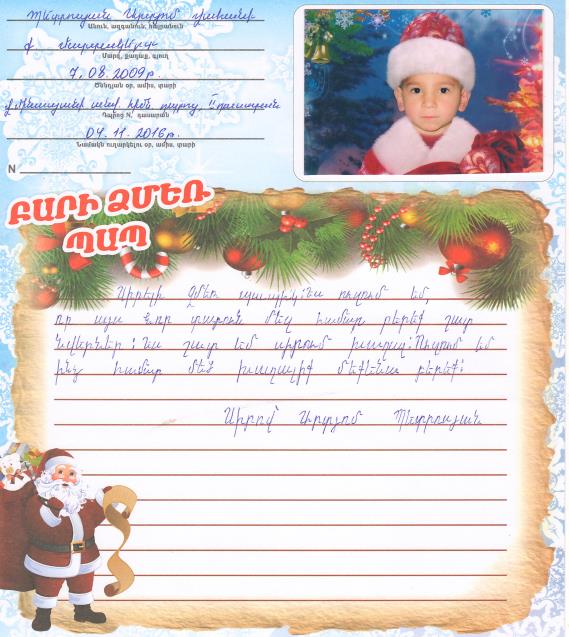 Պետրոսյան Արտյոմ Վահանի
Անուն, ազգանուն, հայրանուն
Մարզ, քաղաք, գյուղ
7. 08. 2009թ.
Ծննդյան օր, ամիս, տարի
անվ. հիմն. դպրոց,
Դպրոց N, դասարան
04. 11. 2016թ.
Նամակն ուղարկելու օր, ամիս, տարի
N
ԲԱՐԻ ՁՄԵՌ
ՊԱՊ
Սիրելի Ձմեռ պապիկ: Ես ուզում եմ,
որ այս նոր տարուն մեզ համար բերեք շատ
նվերներ: Ես շատ եմ սիրում խաղալ: Ուզում եմ
ինձ համար մեծ խաղալիք մեքենա բերեք:
Սիրով՝ Արտյոմ Պետրոսյան